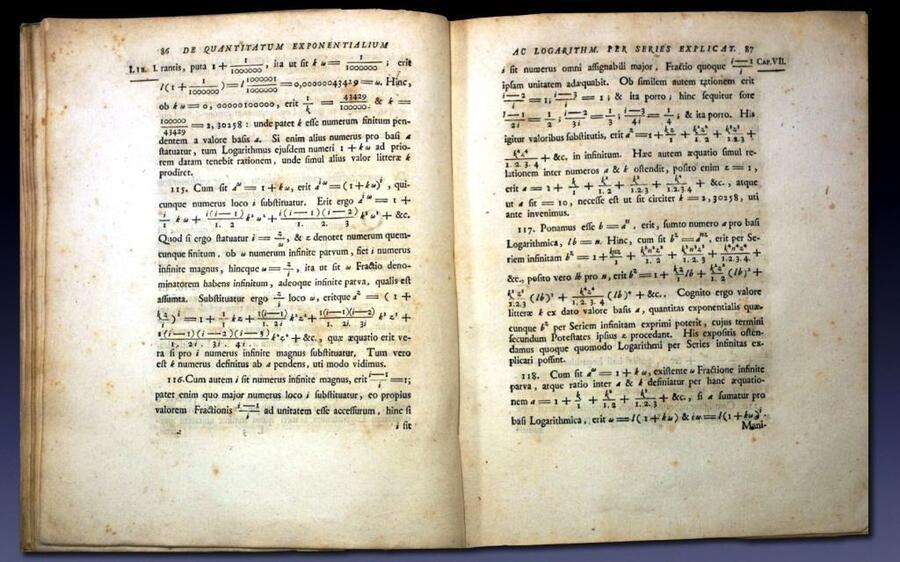 86 DE QUANTITATUM EXPONENTIALIUM
LIB. I. rantis, puta 1 + 1/1000000, ita ut sit kω = 1/1000000; erit
l(1 + 1/1000000) = l 1000001/1000000 = 0,00000043429 = ω. Hinc,
ob kω = 0, 00000100000, erit 1/k = 43429/100000 & k =
100000/43429 = 2, 30258: unde patet k esse numerum finitum pen-
dentem a valore basis a. Si enim alius numerus pro basi a
statuatur, tum Logarithmus ejusdem numeri 1 + kω ad prio-
rem datam tenebit rationem, unde simul alius valor litteræ k
prodiret.
115. Cum sit a^ω = 1 + kω, erit a^iω = (1 + kω)^i, qui-
cunque numerus loco i substituatur. Erit ergo a^iω = 1 +
i/1 kω + i(i—1)/1. 2 k²ω² + i(i—1)(i—2)/1. 2. 3 k³ω³ + &c.
Quod si ergo statuatur i = z/ω, & z denotet numerum quem-
cunque finitum, ob ω numerum infinite parvum, fiet i numerus
infinite magnus, hincque ω = z/i, ita ut sit ω Fractio deno-
minatorem habens infinitum, adeoque infinite parva, qualis est
assumta. Substituatur ergo z/i loco ω, eritque a^z = (1 +
kz/i)^i = 1 + 1/1 kz + 1(i—1)/1. 2i k²z² + 1(i—1)(i—2)/1. 2i. 3i k³z³ +
1(i—1)(i—2)(i—3)/1. 2i. 3i. 4i. k⁴z⁴ + &c., quæ æquatio erit ve-
ra si pro i numerus infinite magnus substituatur. Tum vero
est k numerus definitus ab a pendens, uti modo vidimus.
116. Cum autem i sit numerus infinite magnus, erit i—1/i = 1;
patet enim quo major numerus loco i substituatur, eo propius
valorem Fractionis i—1/i ad unitatem esse accessurum, hinc si
i sit
AC LOGARITHM. PER SERIES EXPLICAT. 87
i sit numerus omni assignabili major, Fractio quoque i—1/i CAP. VII.
ipsam unitatem adæquabit. Ob similem autem rationem erit
i—2/i = 1; i—3/i = 1; & ita porro; hinc sequitur fore
i—1/2i = 1/2; i—2/3i = 1/3; i—3/4i = 1/4; & ita porro. His
igitur valoribus substitutis, erit a^z = 1 + kz/1 + k²z²/1. 2 + k³z³/1. 2. 3 +
k⁴z⁴/1. 2. 3. 4 + &c. in infinitum. Hæc autem æquatio simul re-
lationem inter numeros a & k ostendit, posito enim z = 1,
erit a = 1 + k/1 + k²/1. 2 + k³/1.2.3 + k⁴/1.2.3.4 + &c., atque
ut a sit = 10, necesse est ut sit circiter k = 2,30258, uti
ante invenimus.
117. Ponamus esse b = a^n, erit, sumto numero a pro basi
Logarithmica, lb = n. Hinc, cum sit b^z = a^nz, erit per Se-
riem infinitam b^z = 1 + knz/1 + k²n²z²/1. 2 + k³n³z³/1. 2. 3 + k⁴n⁴z⁴/1. 2. 3. 4. +
&c., posito vero lb pro n, erit b^z = 1 + kz/1 lb + k²z²/1. 2 (lb)² +
k³z³/1.2.3 (lb)³ + k⁴z⁴/1. 2. 3. 4 (lb)⁴ + &c.. Cognito ergo valore
litteræ k ex dato valore basis a, quantitas exponentialis quæ-
cunque b^z per Seriem infinitam exprimi poterit, cujus termini
secundum Potestates ipsius z procedant. His expositis osten-
damus quoque quomodo Logarithmi per Series infinitas ex-
plicari possint.
118. Cum sit a^ω = 1 + kω, existente ω Fractione infinite
parva, atque ratio inter a & k definiatur per hanc æquatio-
nem a = 1 + k/1 + k²/1. 2 + k³/1. 2. 3 + &c., si a sumatur pro
basi Logarithmica, erit ω = l(1 + kω) & iω = l(1 + kω)^i.
Mani-